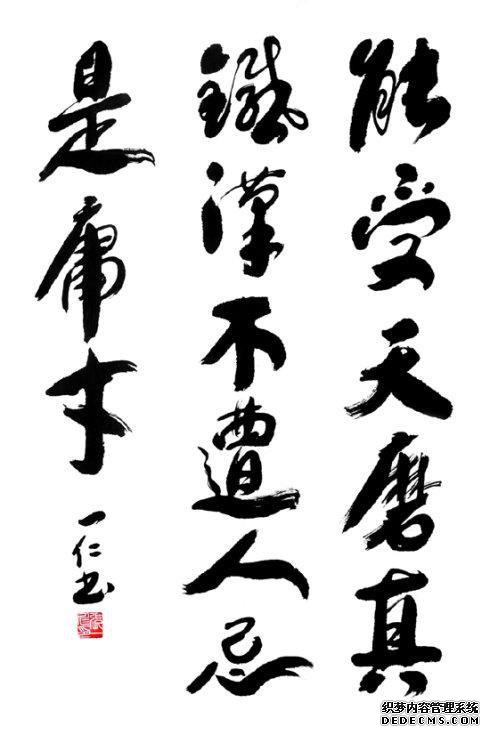 能受天磨真
鐵漢不遭人忌
是庸才
一仁书
织梦内容管理系统
DEDECMS.COM